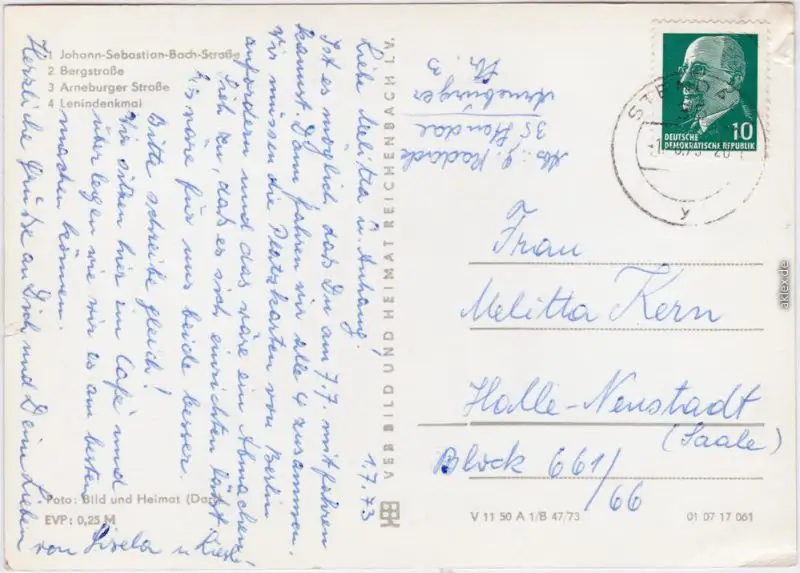 1 Johann-Sebastian-Bach-Straße
2 Bergstraße
3 Arneburger Straße
4 Lenindenkmal
1.7.73
Liebe Melitta u. Anhang!
Ist es möglich das Du am 7.7. mitfahren
kannst. Dann fahren wir alle 4 zusammen.
Wir müssen die Platzkarten von Berlin
anfordern und das wäre ein Abmachen.
Sieh zu, daß es sich einrichten läßt.
Es wäre für uns beide besser.
Bitte schreibe gleich!
Wir sitzen hier im Café und
überlegen wie wir es am besten
machen können.
Herzliche Grüße an Dich und Deine Lieben
von Gisela u.
Foto: Bild und Heimat
EVP: 0,25 M
VEB BILD UND HEIMAT REICHENBACH I. V.
Abs.: G. Radack
35 Stendal
Arneburger
Str. 3
DEUTSCHE
DEMOKRATISCHE REPUBLIK
10
Frau
Melitta Kern
Halle-Neustadt
(Saale)
Block 661/
66
V 11 50 A 1/B 47/73
01 07 17 061
akpool.de